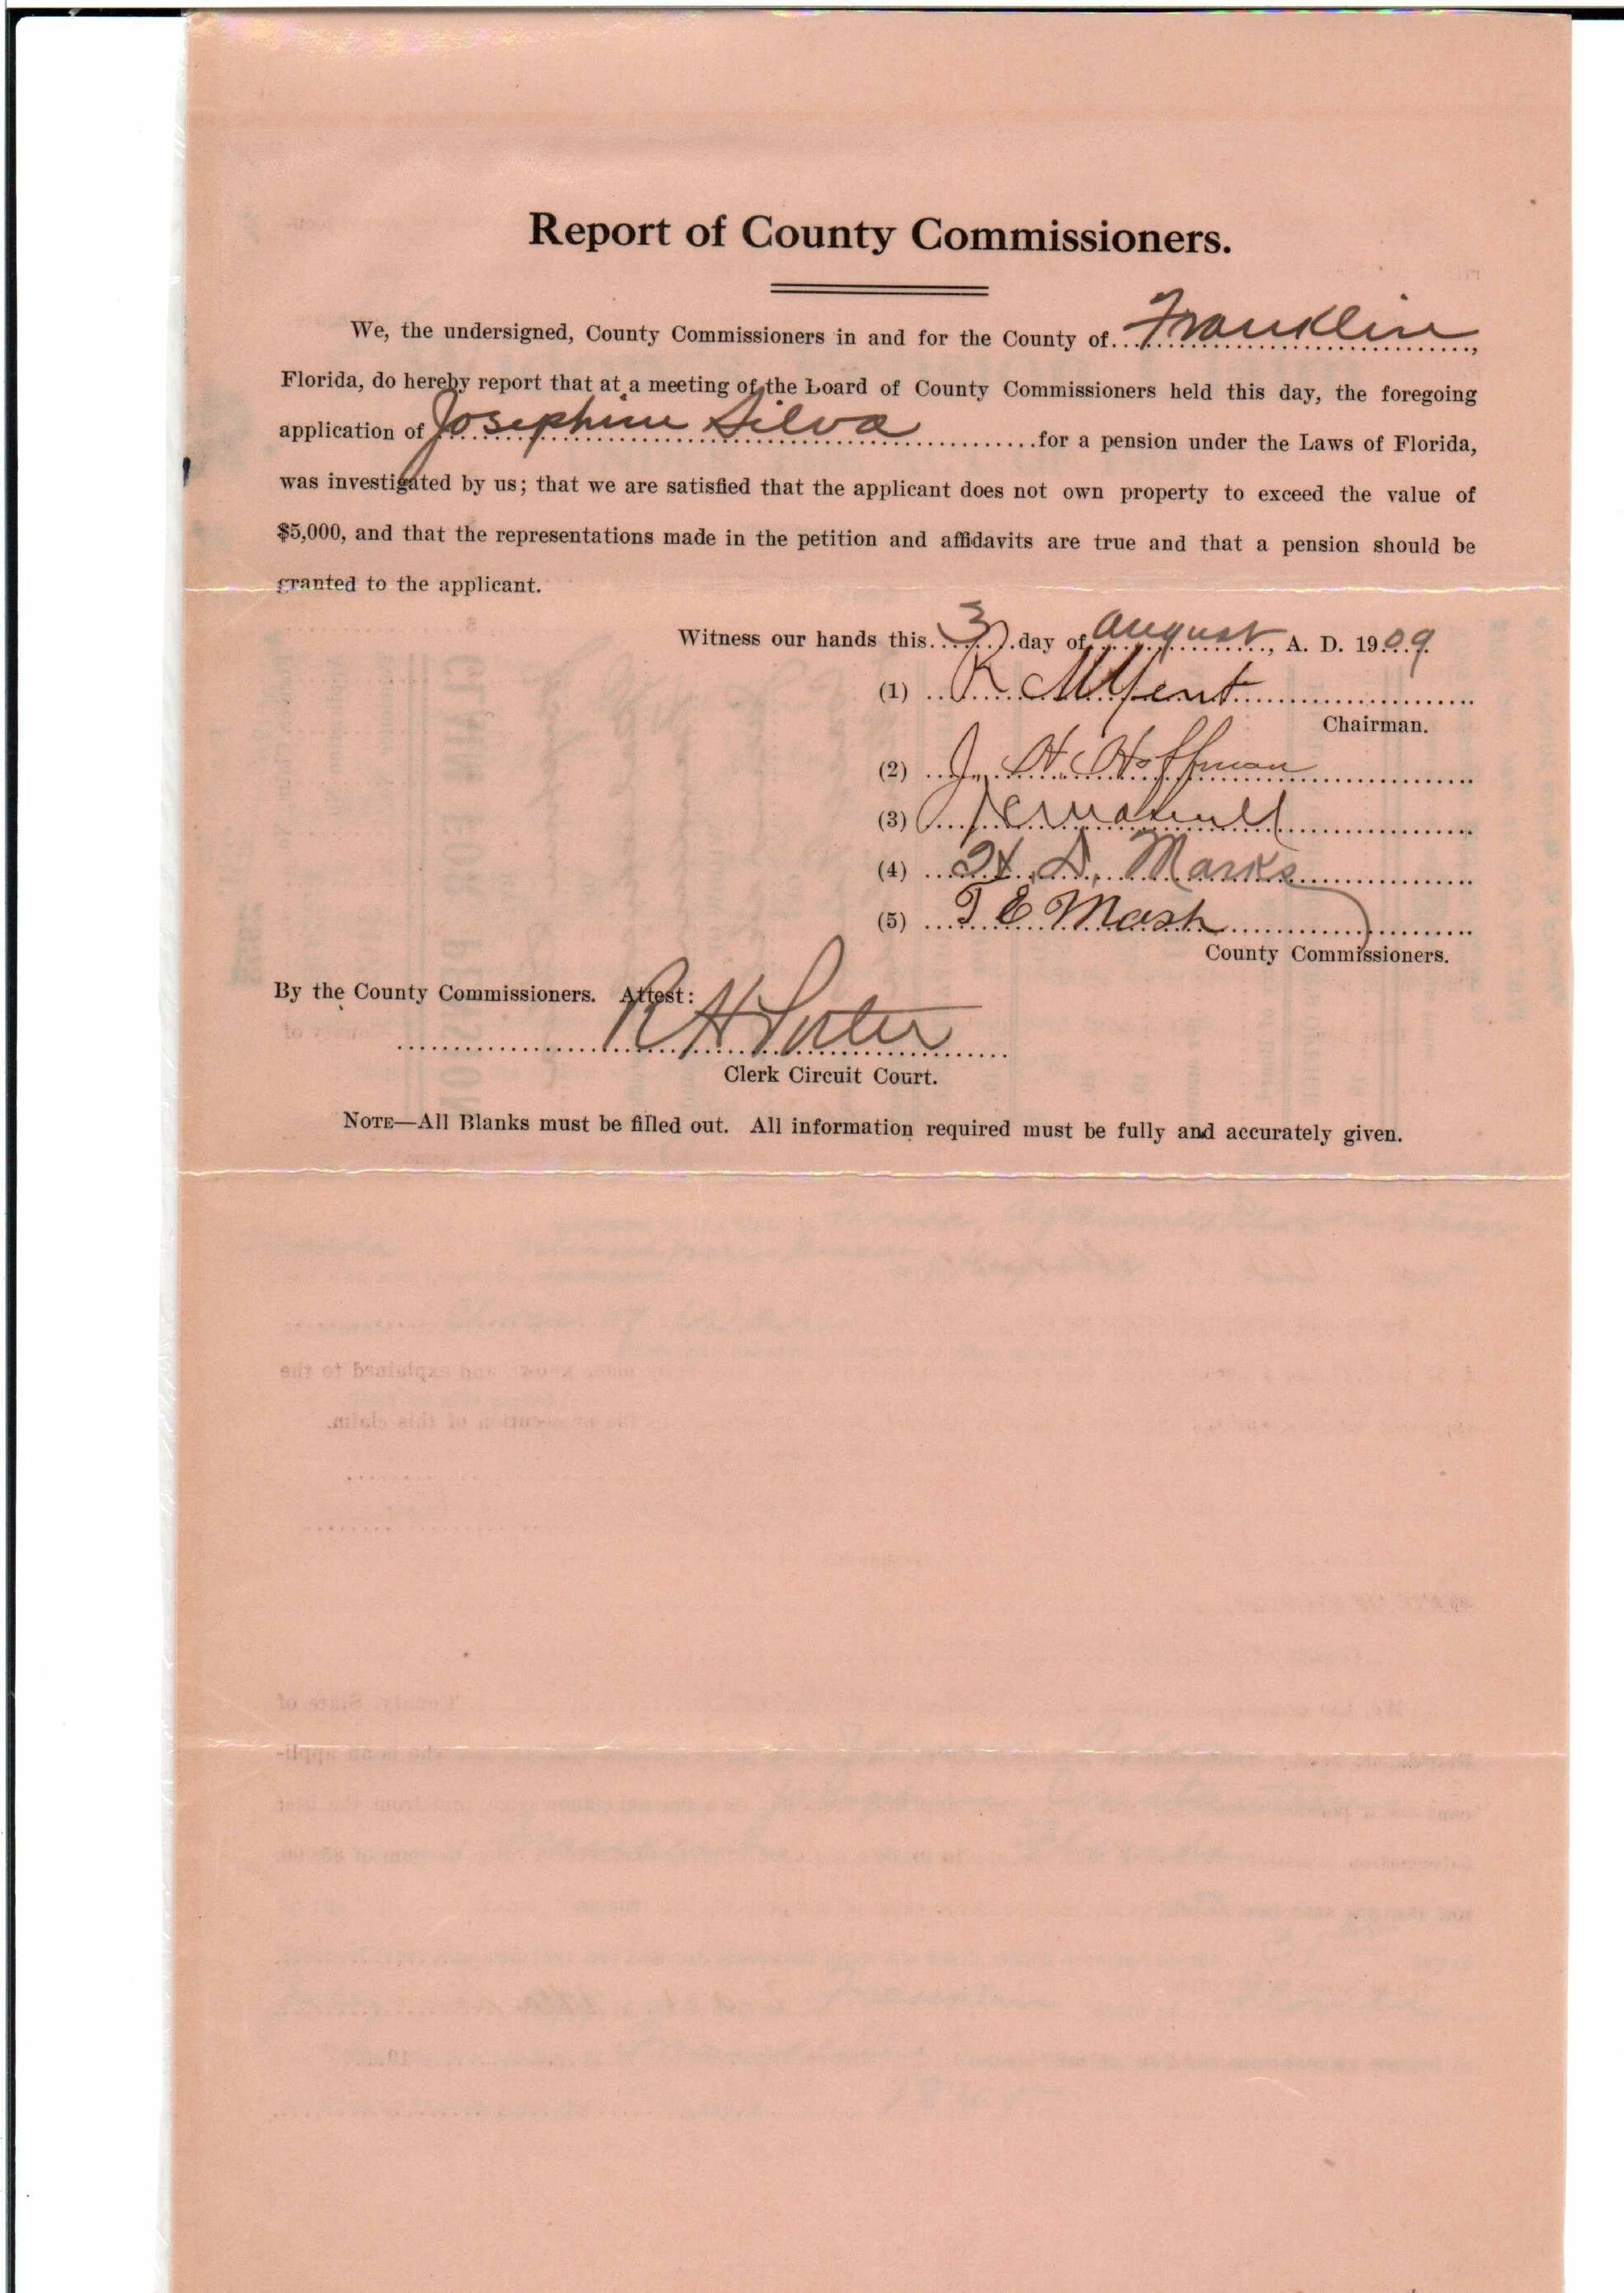 Report of County Commissioners.
We, the undersigned, County Commissioners in and for the County of Franklin,
Florida, do hereby report that at a meeting of the Board of County Commissioners held this day, the foregoing
application of Josephine Silva for a pension under the Laws of Florida,
was investigated by us; that we are satisfied that the applicant does not own property to exceed the value of
$5,000, and that the representations made in the petition and affidavits are true and that a pension should be
granted to the applicant.
Witness our hands this 3 day of August, A. D. 1909
(1) R
Chairman.
(2) J. H. Hoffman
(3)
(4) H. D. Marks
(5) T E Mash
County Commissioners.
By the County Commissioners. Attest:
R H Porter
Clerk Circuit Court.
NOTE—All Blanks must be filled out. All information required must be fully and accurately given.